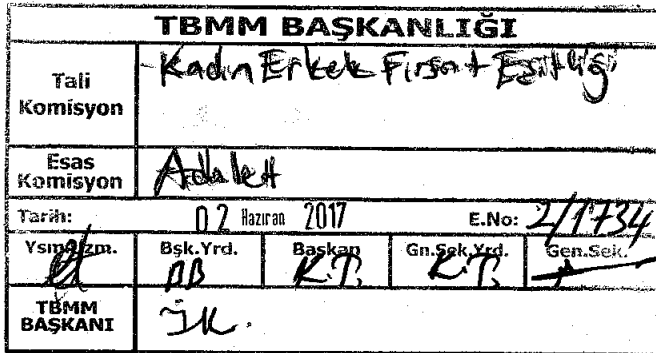 TBMM BAŞKANLIĞI
Tali Komisyon Kadın Erkek Fırsat Eşitliği
Esas Komisyon Adalet
Tarih: 02 Haziran 2017 E.No: 2/1734
Bşk.Yrd. Başkan Gn.Sek.Yrd. Gen.Sek.
BB K.T. K.T.
TBMM BAŞKANI İK.